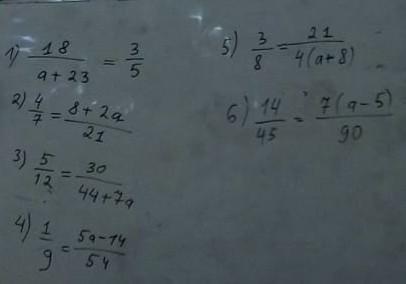 1) 18/(a+23) = 3/5
2) 4/7 = (8+2a)/21
3) 5/12 = 30/(44+7a)
4) 1/9 = (5a-14)/54
5) 3/8 = 21/(4(a+8))
6) 14/45 = 7(a-5)/90